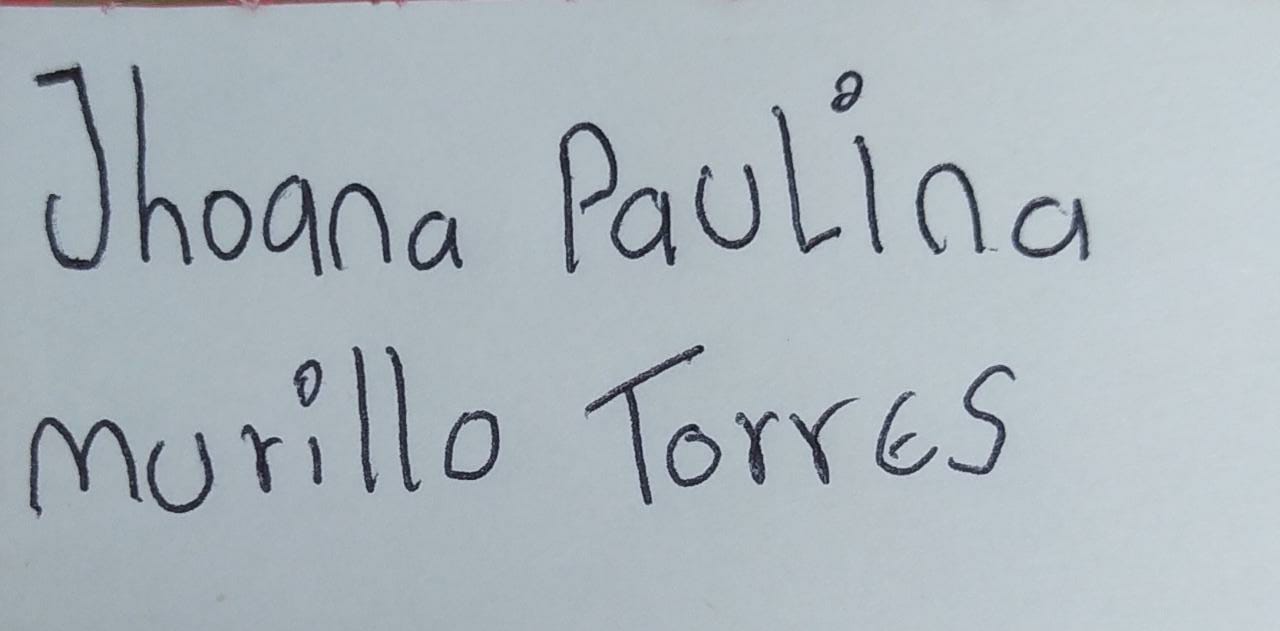 Jhoana Paulina
murillo Torres